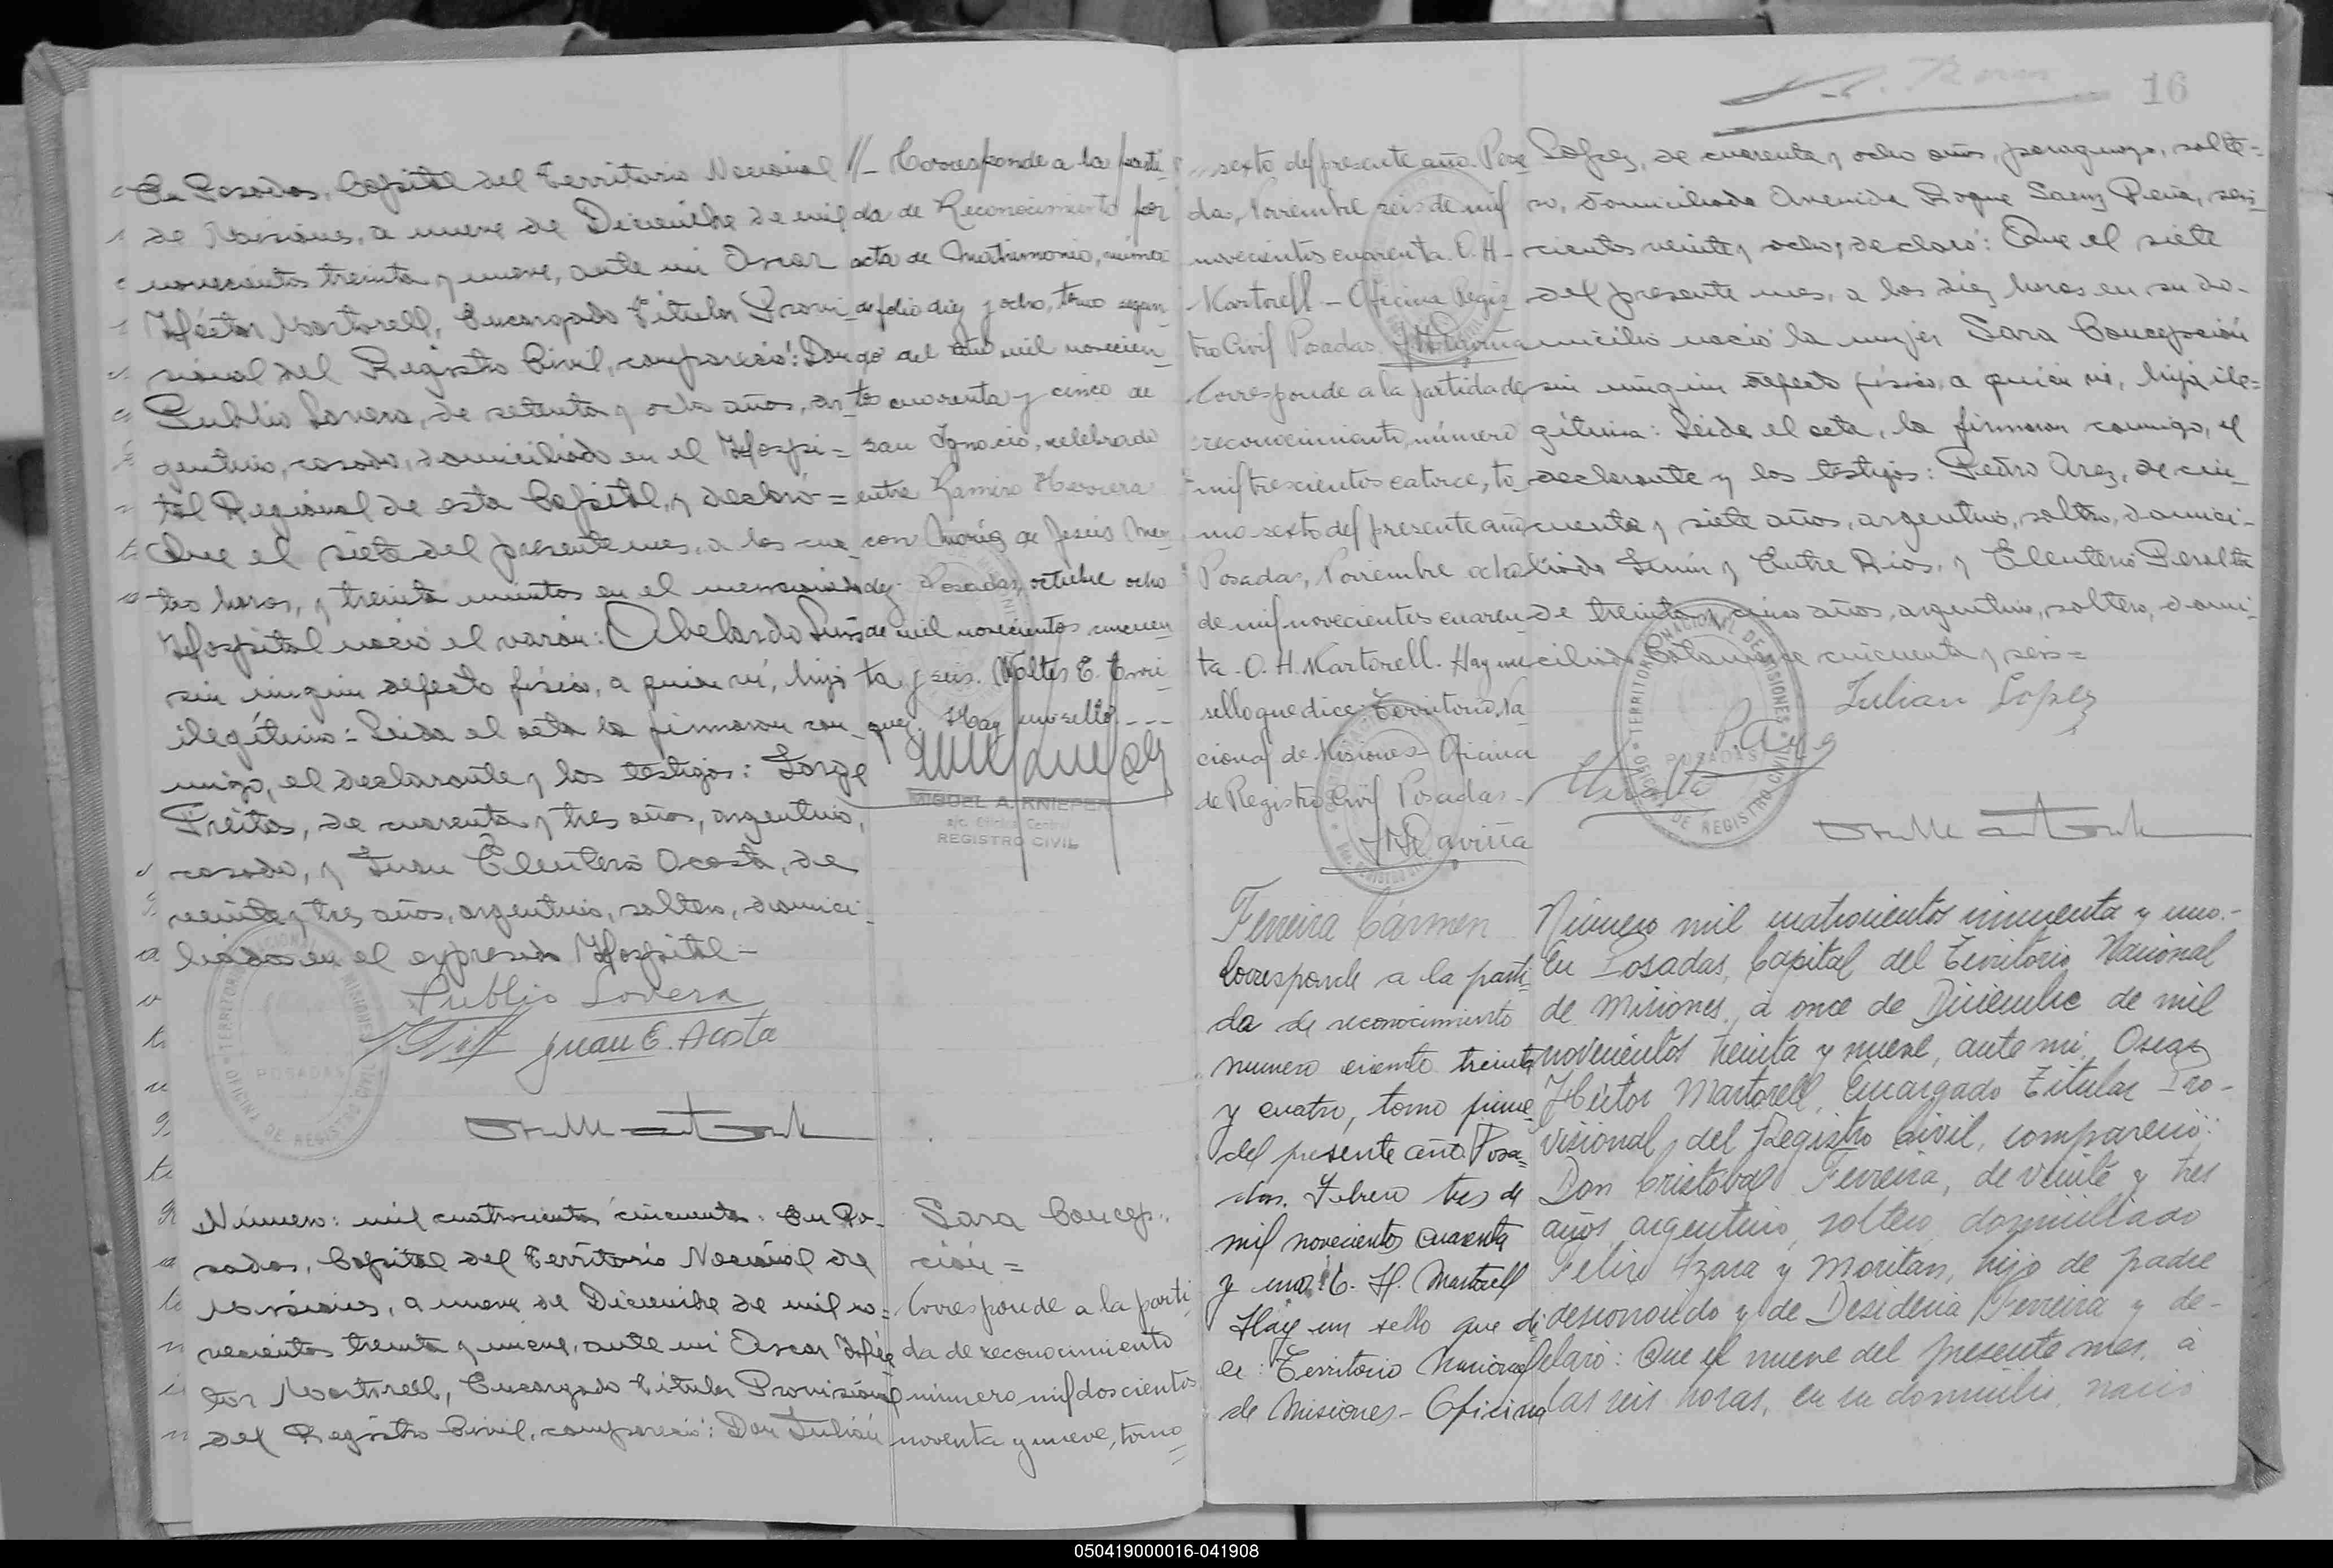 En Posadas, Capital del Territorio Nacional
de Misiones, a nueve de Diciembre de mil
novecientos treinta y nueve, ante mi Oscar
Héctor Martorell, Encargado Titular Provi-
sional del Registro Civil, compareció: Don
Publio Lovera, de setenta y ocho años, ar-
gentino, casado, domiciliado en el Hospi=
tal Regional de esta Capital, y declaró=
Que el siete del presente mes, a las cua-
tro horas, y treinta minutos en el mencionado
Hospital nació el varón: Abelardo Luis
sin ningún defecto físico, a quien ví, hijo
ilegítimo: Leida el acta la firmaron con-
migo, el declarante y los testigos: Jorge
Freitas, de cuarenta y tres años, argentino,
casado, y Juan Eleuterio Acosta, de
veinte y tres años, argentino, soltero, domici-
liados en el expresado Hospital-
Publio Lovera
Juan E. Acosta
TERRITORIO NACIONAL DE MISIONES
POSADAS
OFICINA DE REGISTRO CIVIL
Número: mil cuatrocientos cincuenta. En Po-
sadas, Capital del Territorio Nacional de
Misiones, a nueve de Diciembre de mil no=
vecientos treinta y nueve, ante mi Oscar Héc
tor Martorell, Encargado Titular Provisional
del Registro Civil, compareció: Don Julián
//- Corresponde a la parti-
da de Reconocimiento por
acta de Matrimonio, núme
folio diez y ocho, tomo segun-
do del año mil novecien-
tos cuarenta y cinco de
San Ignacio, celebrado
entre Ramiro Herrera
con María de Jesús Men
dez. Posadas, octubre ocho
de mil novecientos cincuen
ta y seis. Walter E. Enri-
quez. Hay un sello. ---
MIGUEL A. KNIEPER
a/c. Oficina Central
REGISTRO CIVIL
Sara Concep-
ción=
Corresponde a la parti-
da de reconocimiento
número mil doscientos
noventa y nueve, tomo
sexto del presente año. Posa
das, Noviembre seis de mil
novecientos cuarenta. O. H-
Martorell - Oficina Regis-
tro Civil Posadas.
Corresponde a la partida de
reconocimiento, número
mil trescientos catorce, to-
mo sexto del presente año
Posadas, Noviembre ocho
de mil novecientos cuaren-
ta. O. H. Martorell. Hay un
sello que dice: Territorio Na
cional de Misiones - Oficina
de Registro Civil Posadas-
Ferreira Cármen
Corresponde a la parti-
da de reconocimiento
numero ciento treinta
y cuatro, tomo prime-
del presente año. Posa=
das. Febrero tres de
mil novecientos cuarenta
y uno. O. H. Martorell
Hay un sello que di
ce: Territorio Nacional
de Misiones - Oficina
16
Lopez, de cuarenta y ocho años, paraguayo, solte=
ro, domiciliado Avenida Roque Saenz Peña, seis-
cientos veinte y ocho, declaró: Que el siete
del presente mes, a las diez horas en su do-
micilio nació la mujer Sara Concepción
sin ningún defecto físico, a quien vi, hija ile=
gítima: Leida el acta, la firmaron conmigo, el
declarante y los testigos: Pedro Arez, de cin-
cuenta y siete años, argentino, soltero, domici-
liado Junin y Entre Rios, y Eleuterio Peralta
de treinta y cinco años, argentino, soltero, domi-
ciliado Catamarca cincuenta y seis=
Julian Lopez
TERRITORIO NACIONAL DE MISIONES
POSADAS
OFICINA DE REGISTRO CIVIL
Número mil cuatrocientos cincuenta y uno.-
En Posadas, Capital del Territorio Nacional
de Misiones, á once de Diciembre de mil
novecientos treinta y nueve, ante mi, Oscar
Héctor Martorell, Encargado Titular Pro-
visional, del Registro Civil, compareció:
Don Cristobal Ferreira, de veinte y tres
años, argentino, soltero, domiciliado
Felix Azara y Moritan, hijo de padre
desconocido y de Desideria Ferreira y de-
claró: Que el nueve del presente mes, á
las seis horas, en su domicilio, nació
050419000016-041908